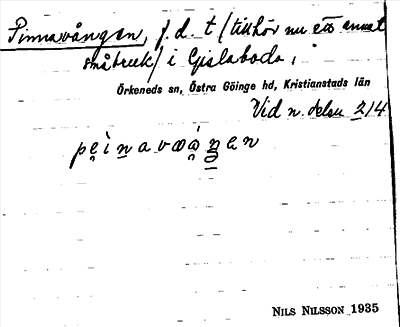 Pinnavången, f.d. t (tillhör nu ett annat
småbruk) i Gislaboda,
Örkeneds sn, Östra Göinge hd, Kristianstads län
Vid n. delen 2/4
NILS NILSSON 1935